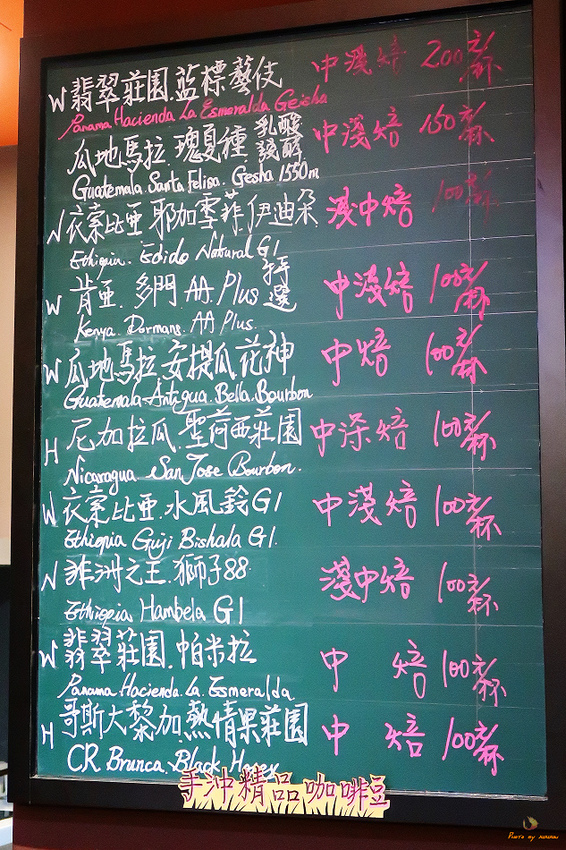 W 翡翠莊園.藍標藝伎 中淺焙 200元/杯
Panama Hacienda La Esmeralda Geisha
瓜地馬拉.瑰夏種 乳酸發酵 中淺焙 150元/杯
Guatemala Santa Felisa. Gesha 1550m
N 衣索比亞 耶加雪菲 伊迪朵 淺中焙 100元/杯
Ethiopia. Edido Natural G1
W 肯亞.多門 AA. Plus 特選 中淺焙 100元/杯
Kenya. Dormans. AA Plus
W 瓜地馬拉 安提瓜.花神 中焙 100元/杯
Guatemala Antigua. Bella. Bourbon
H 尼加拉瓜.聖荷西莊園 中深焙 100元/杯
Nicaragua San Jose Bourbon.
W 衣索比亞.水風鈴 G1 中淺焙 100元/杯
Ethiopia Guji Bishala G1.
N 非洲之王.獅子88 淺中焙 100元/杯
Ethiopia Hambela G1
W 翡翠莊園.帕米拉 中 焙 100元/杯
Panama Hacienda. La. Esmeralda
H 哥斯大黎加 熱情果莊園 中 焙 100元/杯
CR Brunca. Black Honey
手沖精品咖啡豆